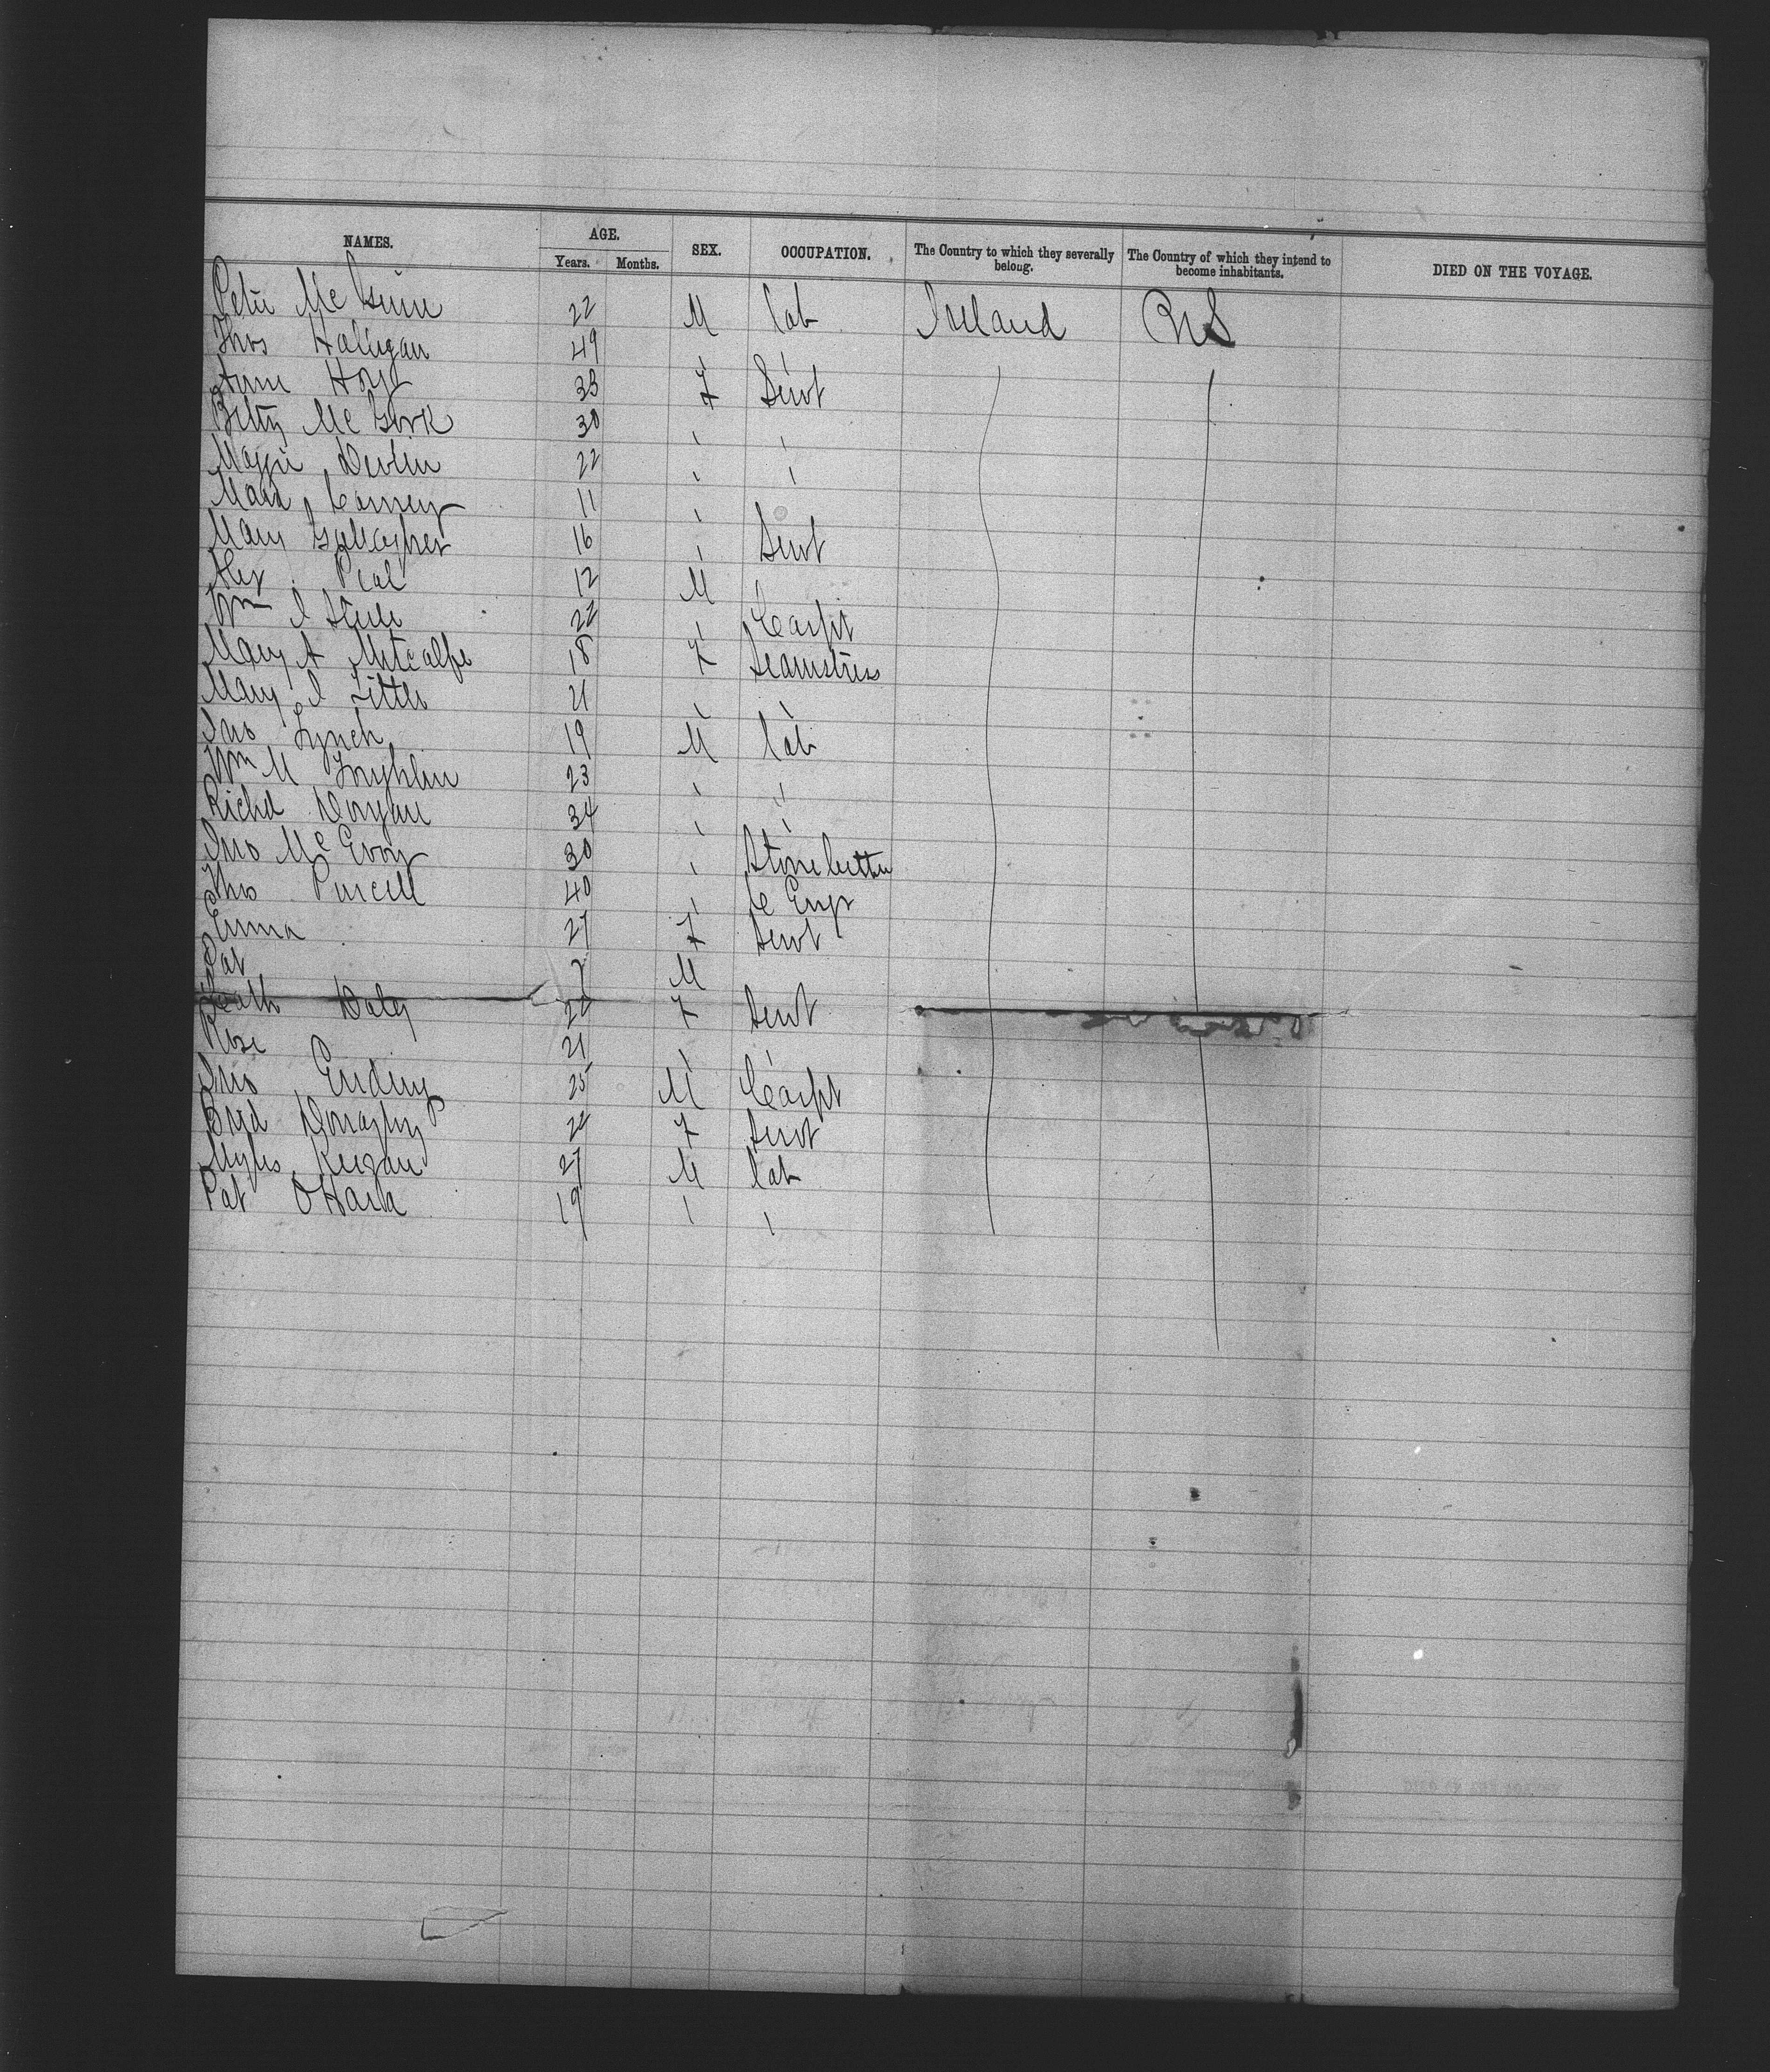 NAMES. AGE. Years. Months. SEX. OCCUPATION. The Country to which they severally belong. The Country of which they intend to become inhabitants. DIED ON THE VOYAGE.
Peter 22 M lab Ireland US
Thos Halligan 49 " "
Anne Hoy 33 F Servt
Betty McGurk 30 " "
Maggie Devlin 22 " "
Carney 11 "
Mary Gallagher 16 " Servt
Alex 12 M
Wm J Steele 22 " Carpt
Mary A Metcalfe 18 F Seamstress
Mary J Little 21 " "
Jno Lynch 19 M lab
Wm M Loughlin 23 " "
Richd Dorgan 34 " "
Jno McEvoy 30 " Stonecutter
Thos Purcell 40 " C Engr
Emma 27 F Servt
Pat 7 M
Cath Daly 22 F Servt
Rose 21 " "
Jno 25 M Carpt
Brid Donaghy 22 F Servt
Myles Keegan 27 M lab
Pat OHara 19 " "